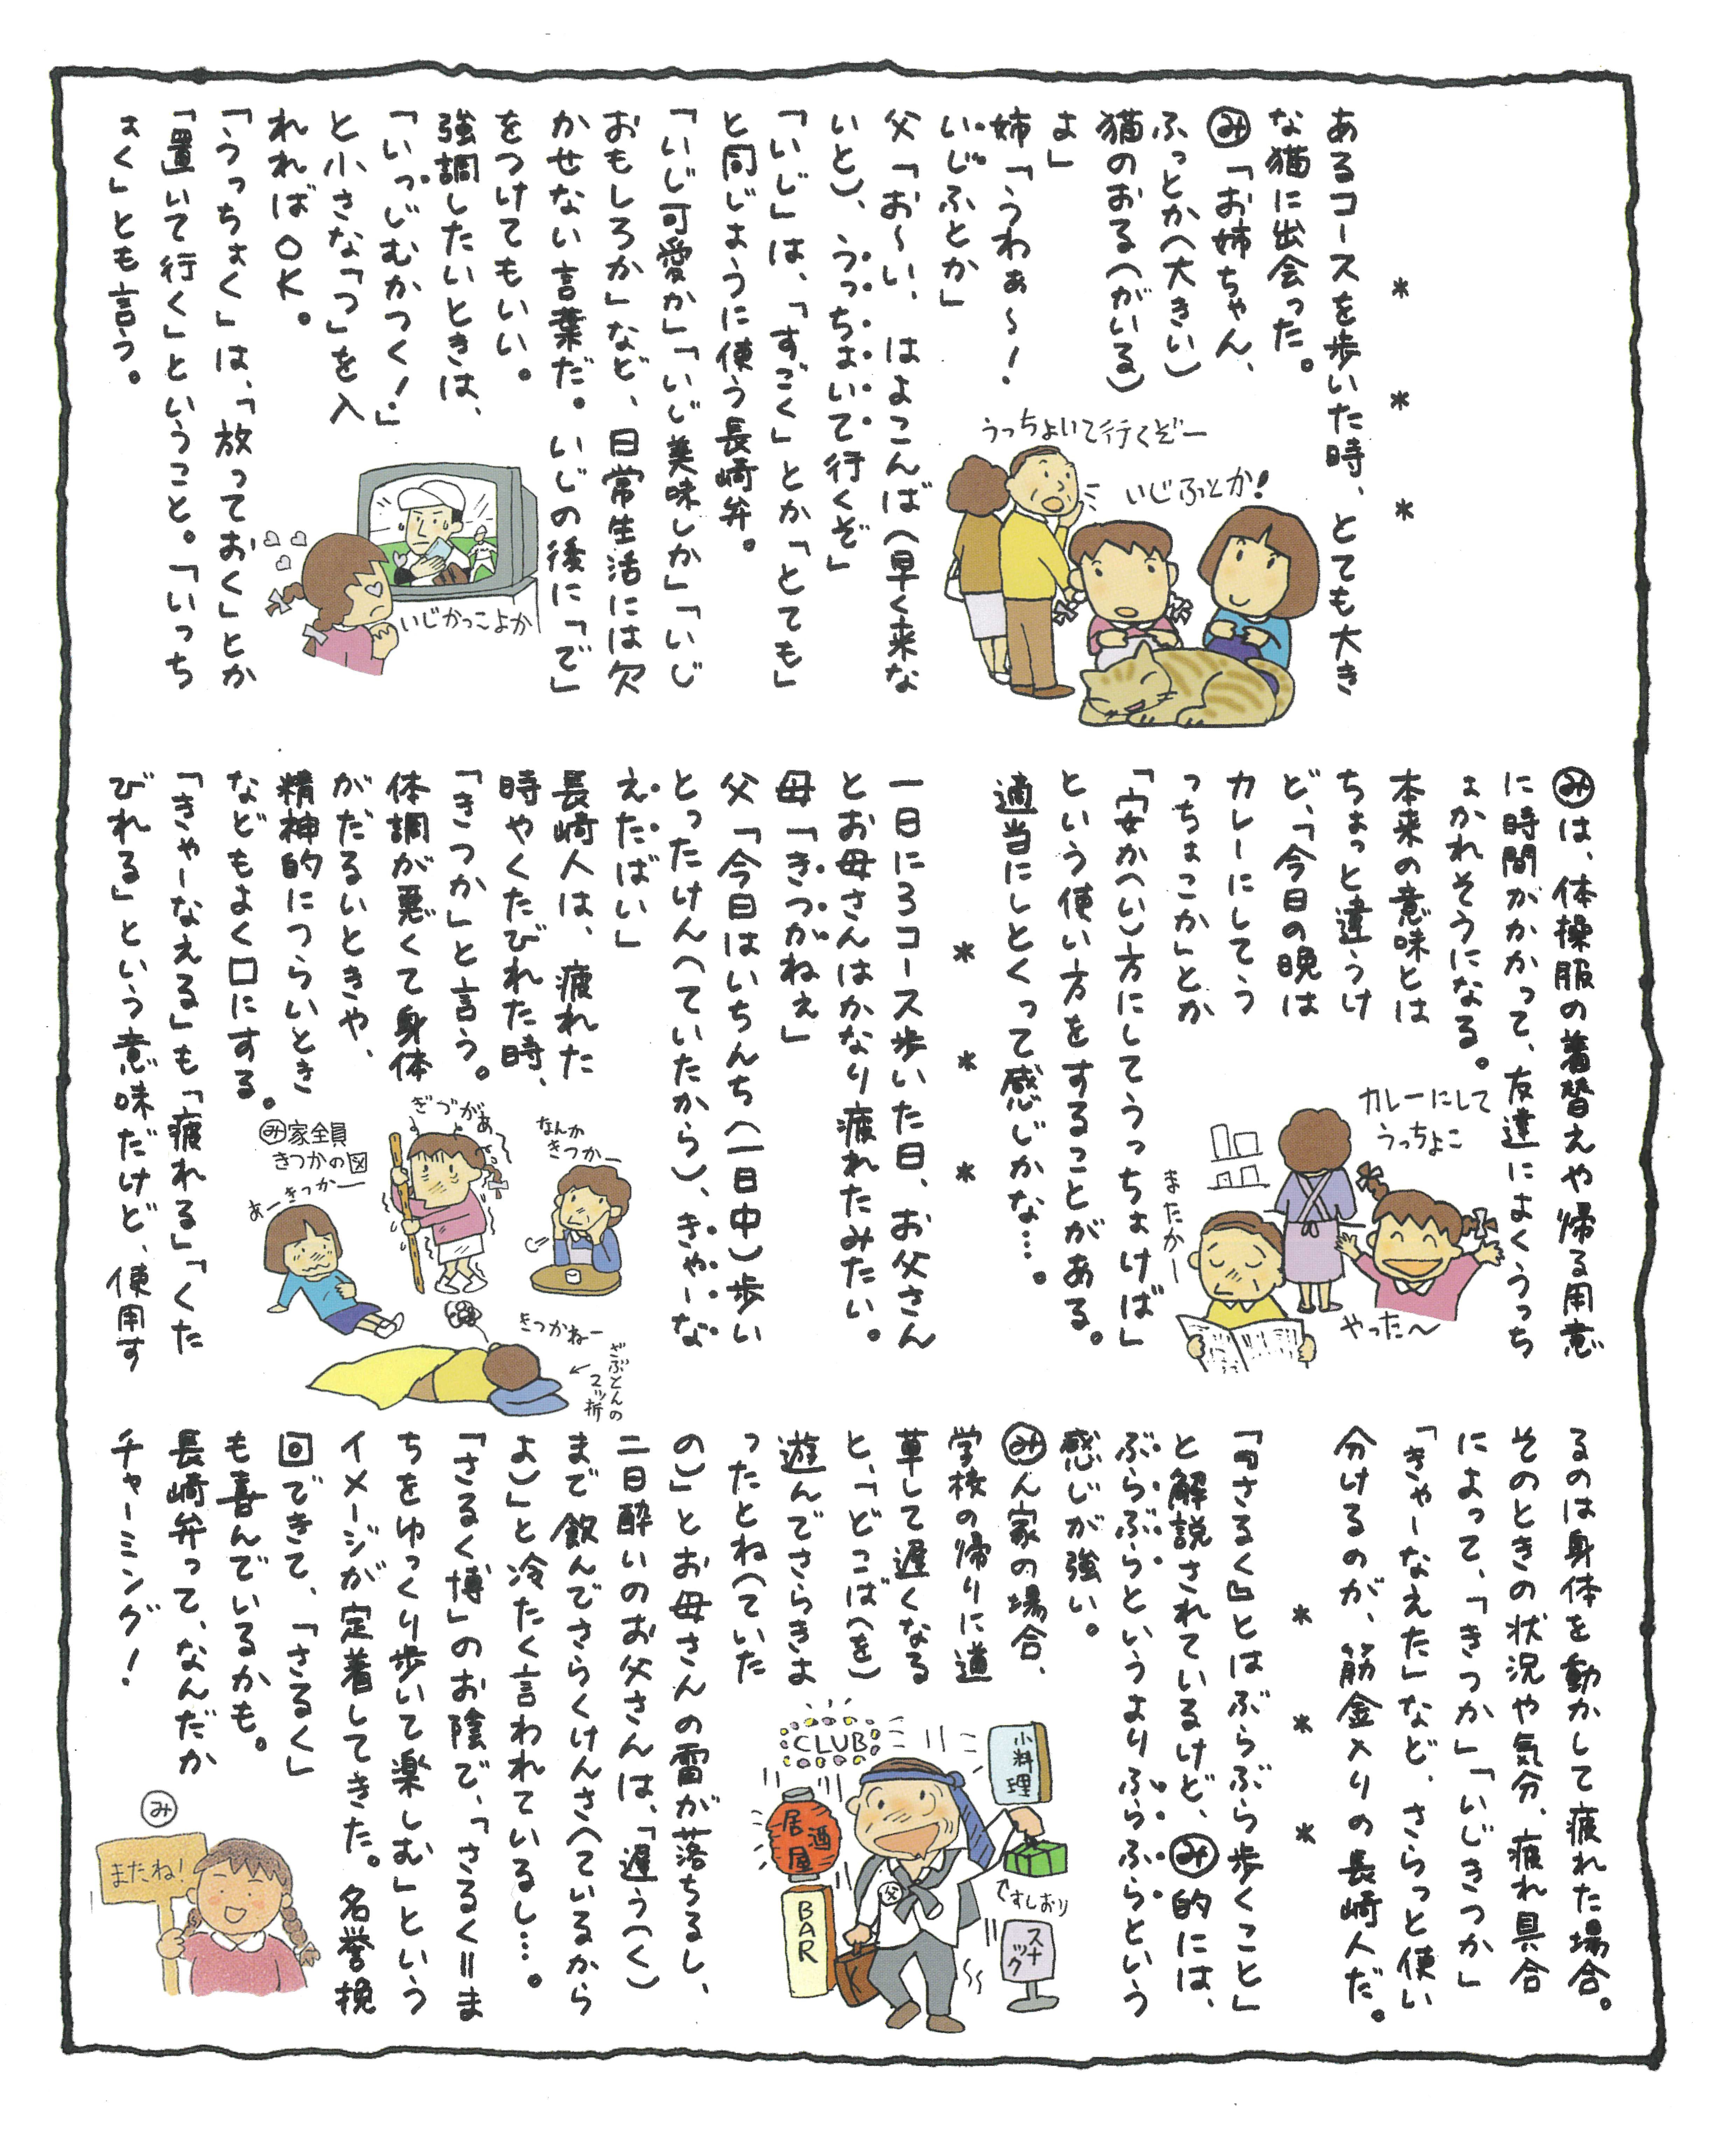 ＊　＊　＊
あるコースを歩いた時、とても大き
な猫に出会った。
み「お姉ちゃん、
ふっとか（大きい）
猫のおる（がいる）
よ」
姉「うわぁ〜！
いじふとか」
父「お〜い、はよこんば（早く来な
いと）、うっちょいて行くぞ」
「いじ」は、「すごく」とか「とても」
と同じように使う長崎弁。
「いじ可愛か」「いじ美味しか」「いじ
おもしろか」など、日常生活には欠
かせない言葉だ。いじの後に「で」
をつけてもいい。
強調したいときは、
「いっじむかつく！」
と小さな「つ」を入
れればOK。
「うっちょく」は、「放っておく」とか
「置いて行く」ということ。「いっち
ょく」とも言う。
うっちょいて行くぞー
いじふっとか！
いじかっこよか
みは、体操服の着替えや帰る用意
に時間がかかって、友達によくうっち
ょかれそうになる。
本来の意味とは
ちょっと違うけ
ど、「今日の晩は
カレーにしてう
っちょこか」とか
「安か（い）方にしてうっちょけば」
という使い方をすることがある。
適当にしとくって感じかな…。
カレーにして
うっちょこ
またかー
やった〜
＊　＊　＊
一日に3コース歩いた日、お父さん
とお母さんはかなり疲れたみたい。
母「きつかねぇ」
父「今日はいちんち（一日中）歩い
とったけん（ていたから）、きゃーな
えたばい」
長崎人は、疲れた
時やくたびれた時、
「きつか」と言う。
体調が悪くて身体
がだるいときや、
精神的につらいとき
などもよく口にする。
「きゃーなえる」も「疲れる」「くた
びれる」という意味だけど、使用す
み家全員
きつかの図
ぎづがぁ〜
なんか
きつかー
あーきつかー
きつかねー
ざぶとんの
二ツ折
るのは身体を動かして疲れた場合。
そのときの状況や気分、疲れ具合
によって、「きつか」「いじきつか」
「きゃーなえた」など、さらっと使い
分けるのが、筋金入りの長崎人だ。
＊　＊　＊
『さるく』とはぶらぶら歩くこと」
と解説されているけど、み的には、
ぶらぶらというよりふらふらという
感じが強い。
みん家の場合、
学校の帰りに道
草して遅くなる
と、「どこば（を）
遊んでさらきよ
ったとね（ていた
の）」とお母さんの雷が落ちるし、
二日酔いのお父さんは、「遅う（く）
まで飲んでさらくけんさ（ているから
よ）」と冷たく言われているし…。
「さるく博」のお陰で、「さるく＝ま
ちをゆっくり歩いて楽しむ」という
イメージが定着してきた。名誉挽
回できて、「さるく」
も喜んでいるかも。
長崎弁って、なんだか
チャーミング！
CLUB
小料理
居酒屋
BAR
父
すしおり
スナック
み
またね！